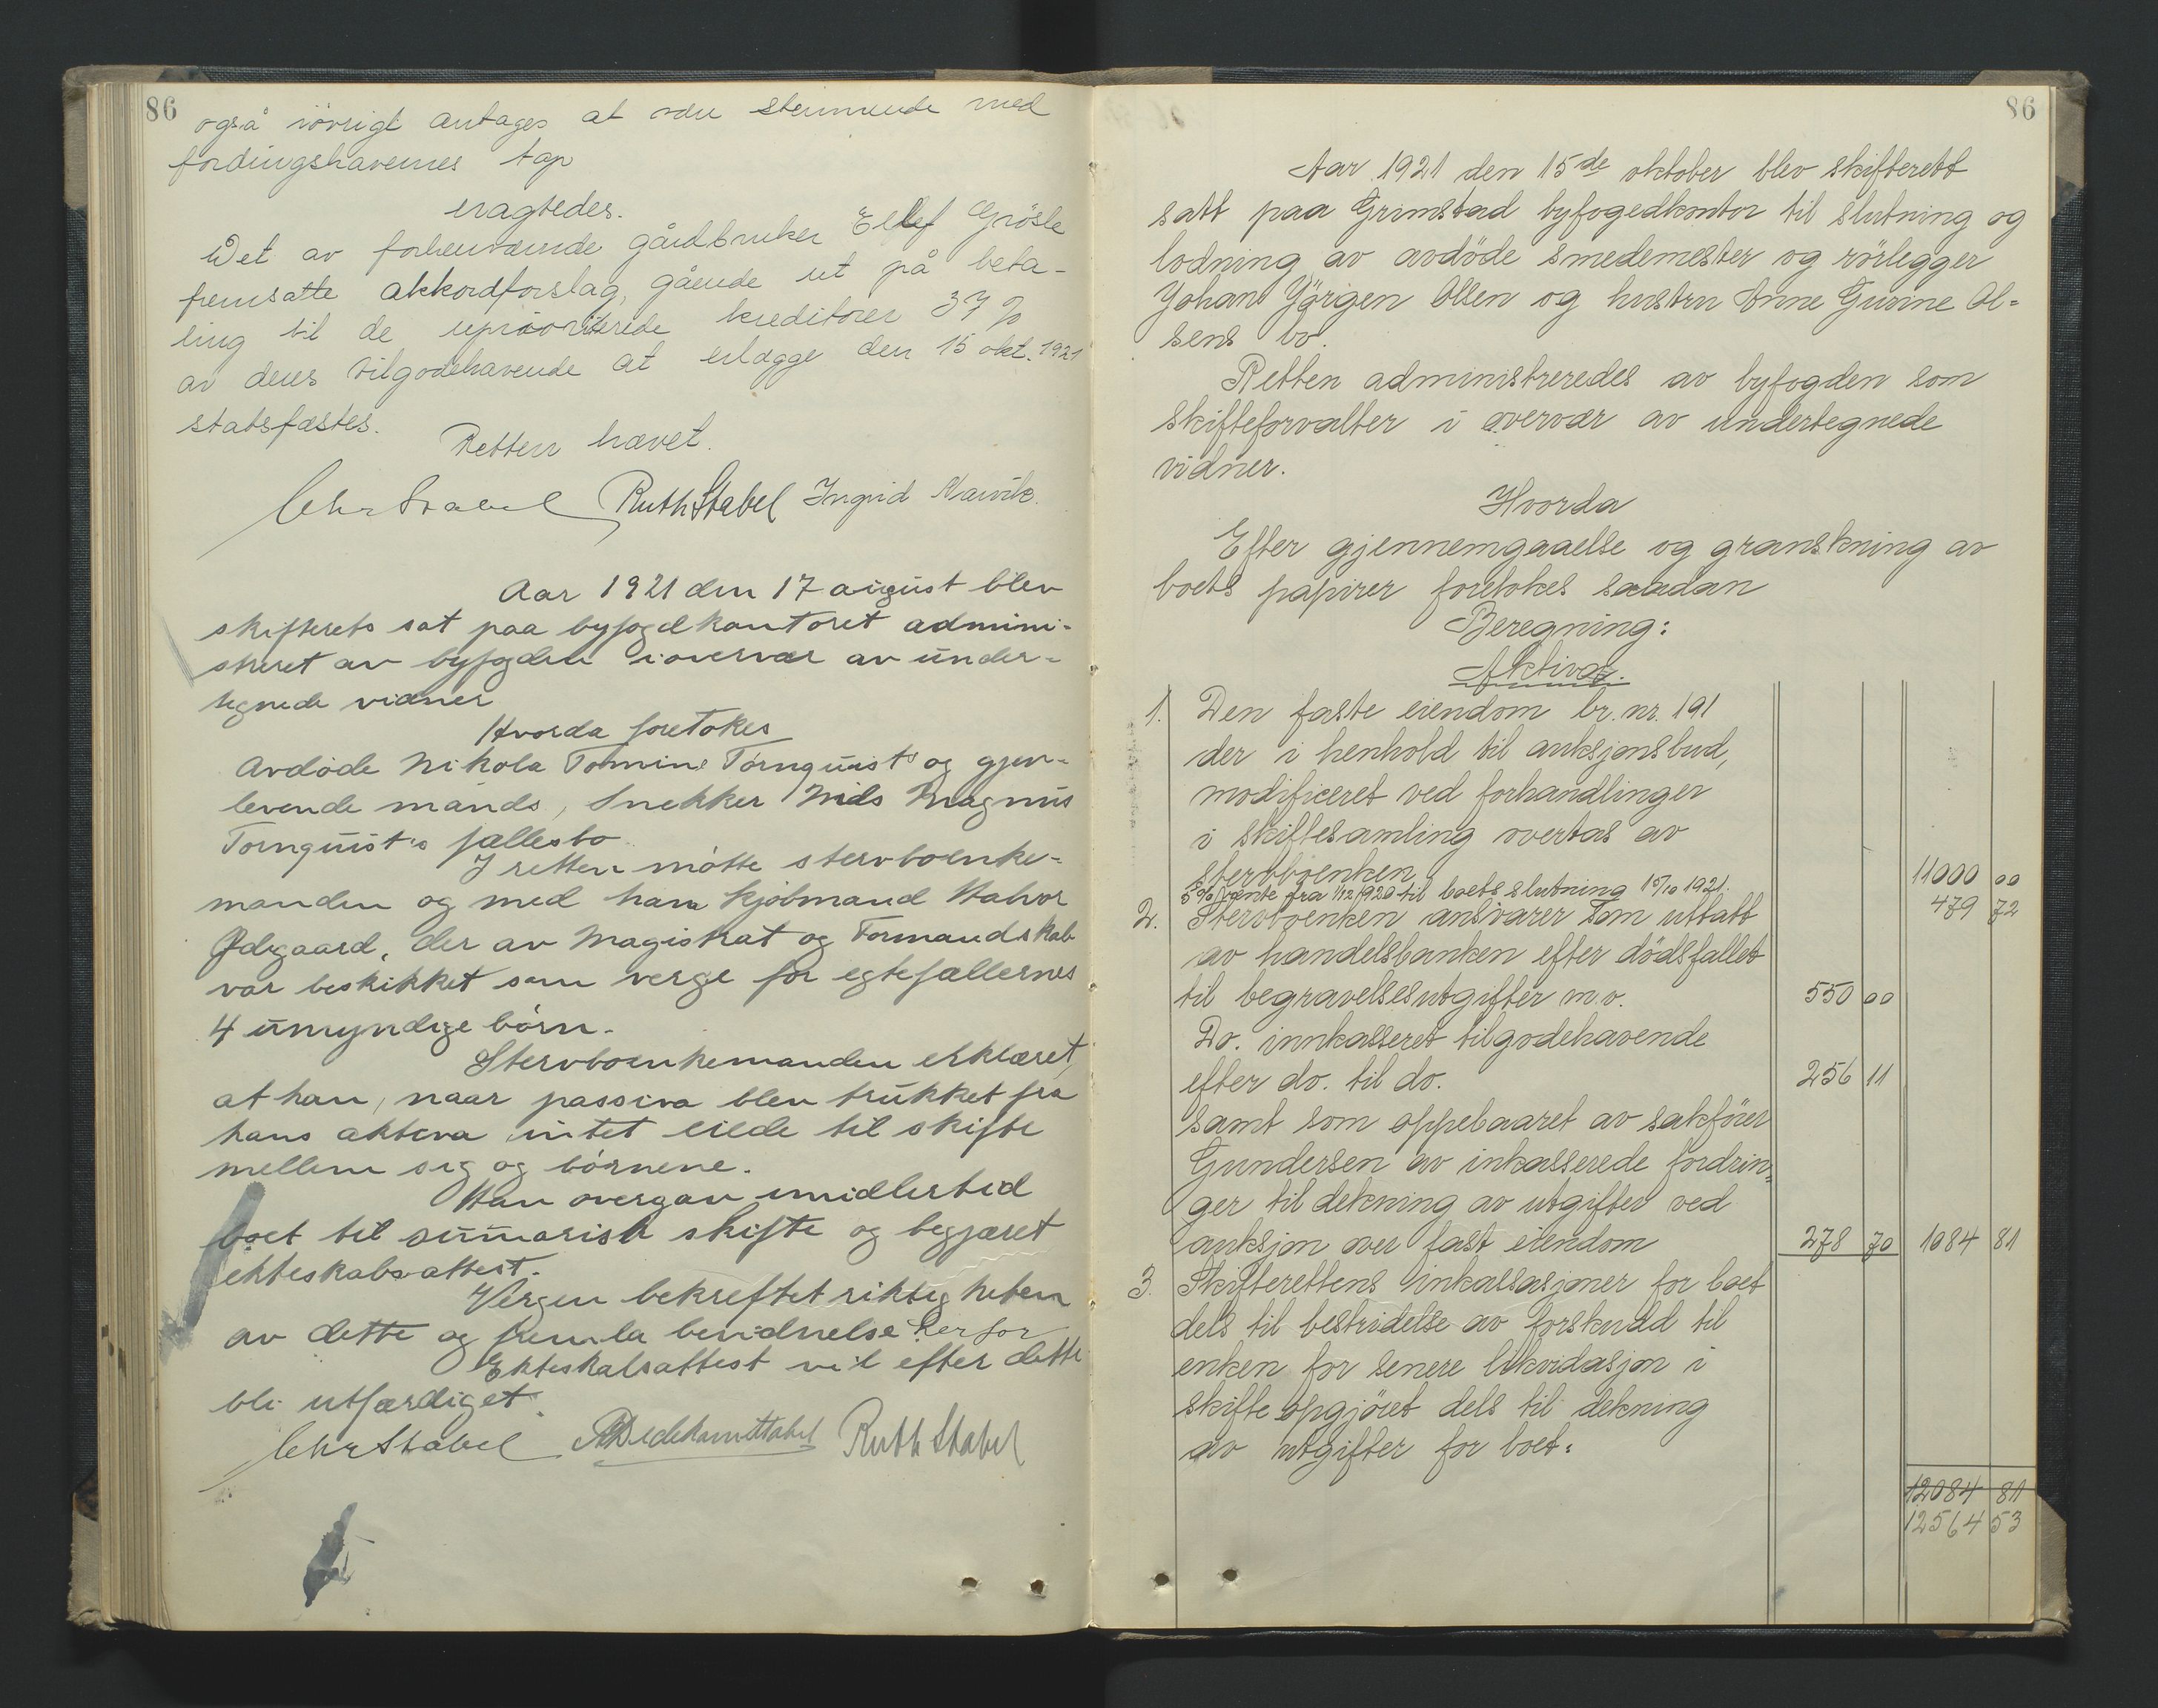 86
også iövrigt antages at være stemmende med
fordingshavernes tap
eragtedes.
Det av forhenværende gårdbruker Ellef Grösle
fremsatte akkordforslag, gående ut på beta-
ling til de uprioriterede kreditorer 37 %
av deres tilgodehavende at erlægge den 15 okt. 1921
statsfæstes.
Retten hævet.
Chr Stabel Ruth Stabel Ingrid Narvik.
Aar 1921 den 17 august blev
skifterets sat paa byfogdkontoret admini-
streret av byfogden i overvær av under-
tegnede vidner
Hvorda foretokes
Avdöde Nikola Tomine Törnquist's og gjen-
levende mands, Snekker Nils Magnus
Tornquist's fællesbo.
I retten mötte stervboenke-
manden og med ham kjöbmand Halvor
Ødegaard, der av Magistrat og Formandskab
var beskikket som verge for egtefællernes
4 umyndige börn.
Stervboenkemanden erklæret,
at han, naar passiva blev trukket fra
hans aktiva intet eiede til skifte
mellem sig og börnene.
Han overgav imidlertid
boet til summarisk skifte og begjæret
ekteskabsattest.
Vergen bekreftet riktigheten
av dette og fremla bevidnelse herfor
Ekteskabsattest vil efter dette
bli utfærdiget.
Chr Stabel Ruth Stabel
86
Aar 1921 den 15de oktober blev skifterett
satt paa Grimstad byfogedkontor til slutning og
lodning av avdöde smedemester og rörlegger
Johan Jörgen Olsen og hustru Anne Gurine Ol=
sens bo.
Retten administreredes av byfogden som
skifteforvalter i overvær av undertegnede
vidner.
Hvorda
Efter gjennemgaaelse og granskning av
boets papirer foretokes saadan
Beregning:
Aktiva.
1. Den faste eiendom br. nr. 191
der i henhold til auksjonsbud,
modificeret ved forhandlinger
i skiftesamling overtas av
stervboenken 11000 00
5% rente fra 1/12 1920 til boets slutning 15/10 1921. 479 72
2. Stervboenken ansvarer som uttatt
av handelsbanken efter dödsfallet
til begravelsesutgifter m.v. 550 00
Do. innkasseret tilgodehavende
efter do. til do. 256 11
samt som oppebaaret av sakförer
Gundersen av inkasserede fordrin=
ger til dekning av utgifter ved
auksjon over fast eiendom 278 70 1084 81
3. Skifterettens inkassasjoner for boet
dels til bestridelse av forskudd til
enken for senere likvidasjon i
skifteopgjöret dels til dekning
av utgifter for boet:
12084 81
12564 53